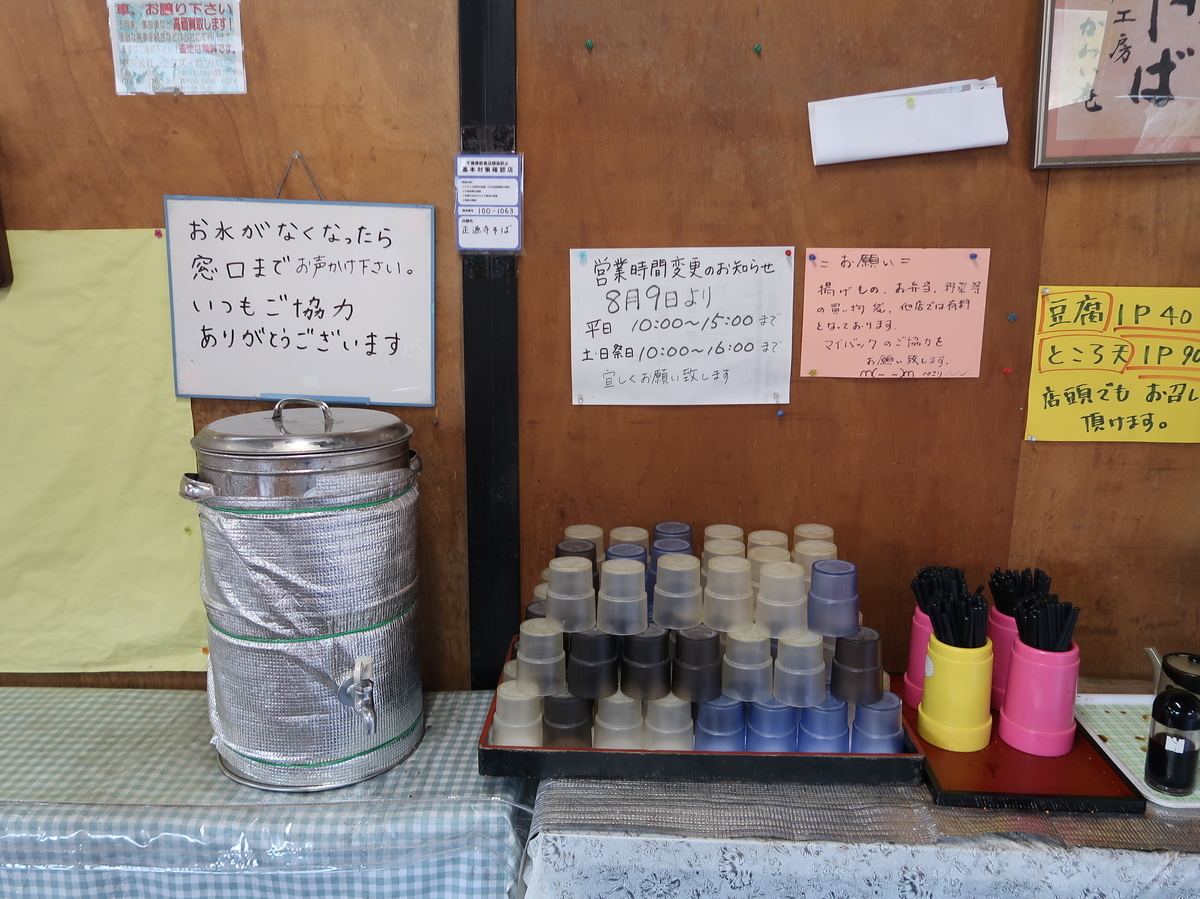 車、お譲り下さい
高価買取します!
お水がなくなったら
窓口までお声かけ下さい。
いつもご協力
ありがとうございます
基本対策確認店
100-1063
店舗名
正源寺そば
営業時間変更のお知らせ
8月9日より
平日 10:00～15:00まで
土・日祭日10:00～16:00まで
宜しくお願い致します
= お願い =
揚げもの、お弁当、野菜等
の買い物袋、他店では有料
となっております。
マイバックのご協力を
お願い致します。
m(_ _)m ペコリ
工房
かわい
そば
豆腐 1P 40
ところ天 1P 90
店頭でもお召し
頂けます。